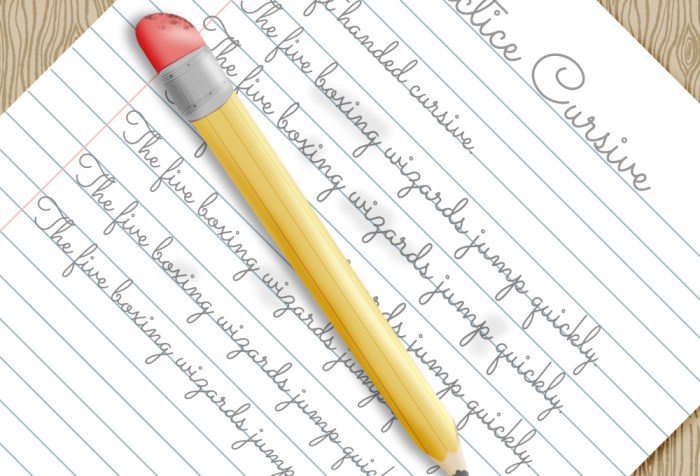 Cursive
handed cursive.
The five boxing wizards jump quickly.
The five boxing wizards jump quickly.
jump quickly.
The five boxing wizards jump
The five boxing wizards jump
The five boxing wizards jump